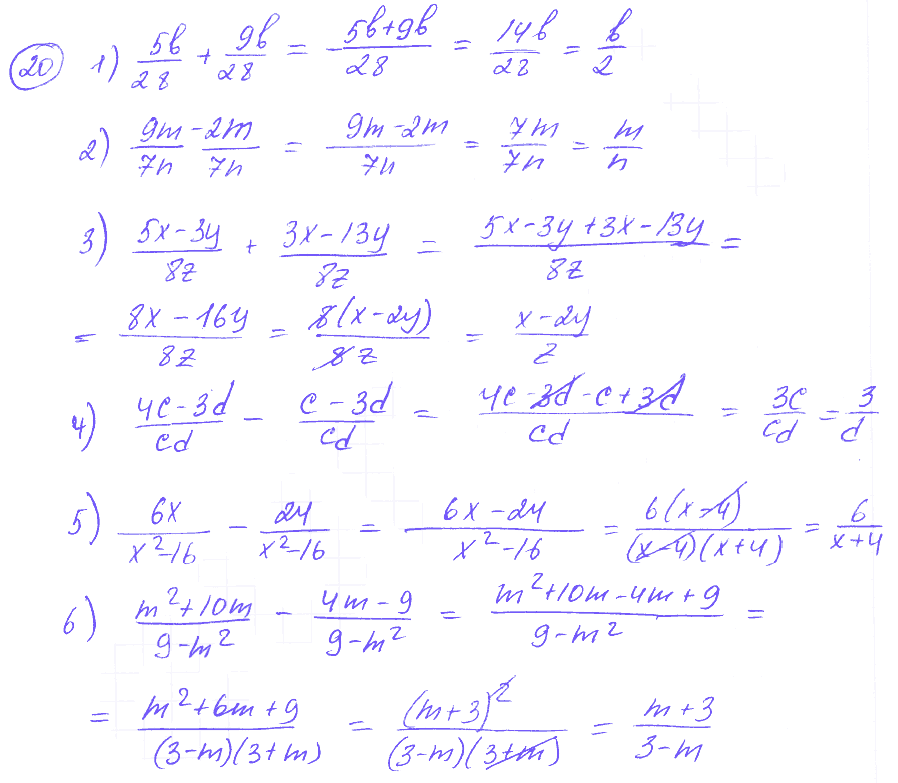 20 1) 5b/28 + 9b/28 = 5b+9b/28 = 14b/28 = b/2
2) 9m/7n - 2m/7n = 9m-2m/7n = 7m/7n = m/n
3) 5x-3y/8z + 3x-13y/8z = 5x-3y+3x-13y/8z =
= 8x-16y/8z = 8(x-2y)/8z = x-2y/z
4) 4c-3d/cd - c-3d/cd = 4c-3d-c+3d/cd = 3c/cd = 3/d
5) 6x/x²-16 - 24/x²-16 = 6x-24/x²-16 = 6(x-4)/(x-4)(x+4) = 6/x+4
6) m²+10m/9-m² - 4m-9/9-m² = m²+10m-4m+9/9-m² =
= m²+6m+9/(3-m)(3+m) = (m+3)²/(3-m)(3+m) = m+3/3-m